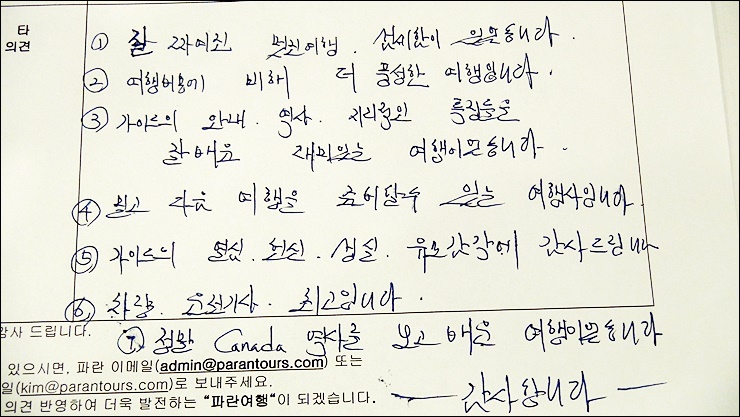 타
의견
① 잘 짜여진 멋진여행. 섬세함이 있었습니다.
② 여행비용에 비해 더 풍성한 여행입니다.
③ 가이드의 안내. 역사. 지리적인 특징들을
잘 배운 재미있는 여행이었습니다.
④ 믿고 다음 여행을 준비할수 있는 여행사입니다.
⑤ 가이드의 열심. 헌신. 성실. 유모감각에 감사드립니다
⑥ 차량. 운전기사. 최고입니다.
⑦ Canada 역사를 보고 배운 여행이었습니다
감사 드립니다.
있으시면, 파란 이메일(admin@parantours.com) 또는
일(kim@parantours.com)로 보내주세요.
의견 반영하여 더욱 발전하는 "파란여행"이 되겠습니다.
감사합니다